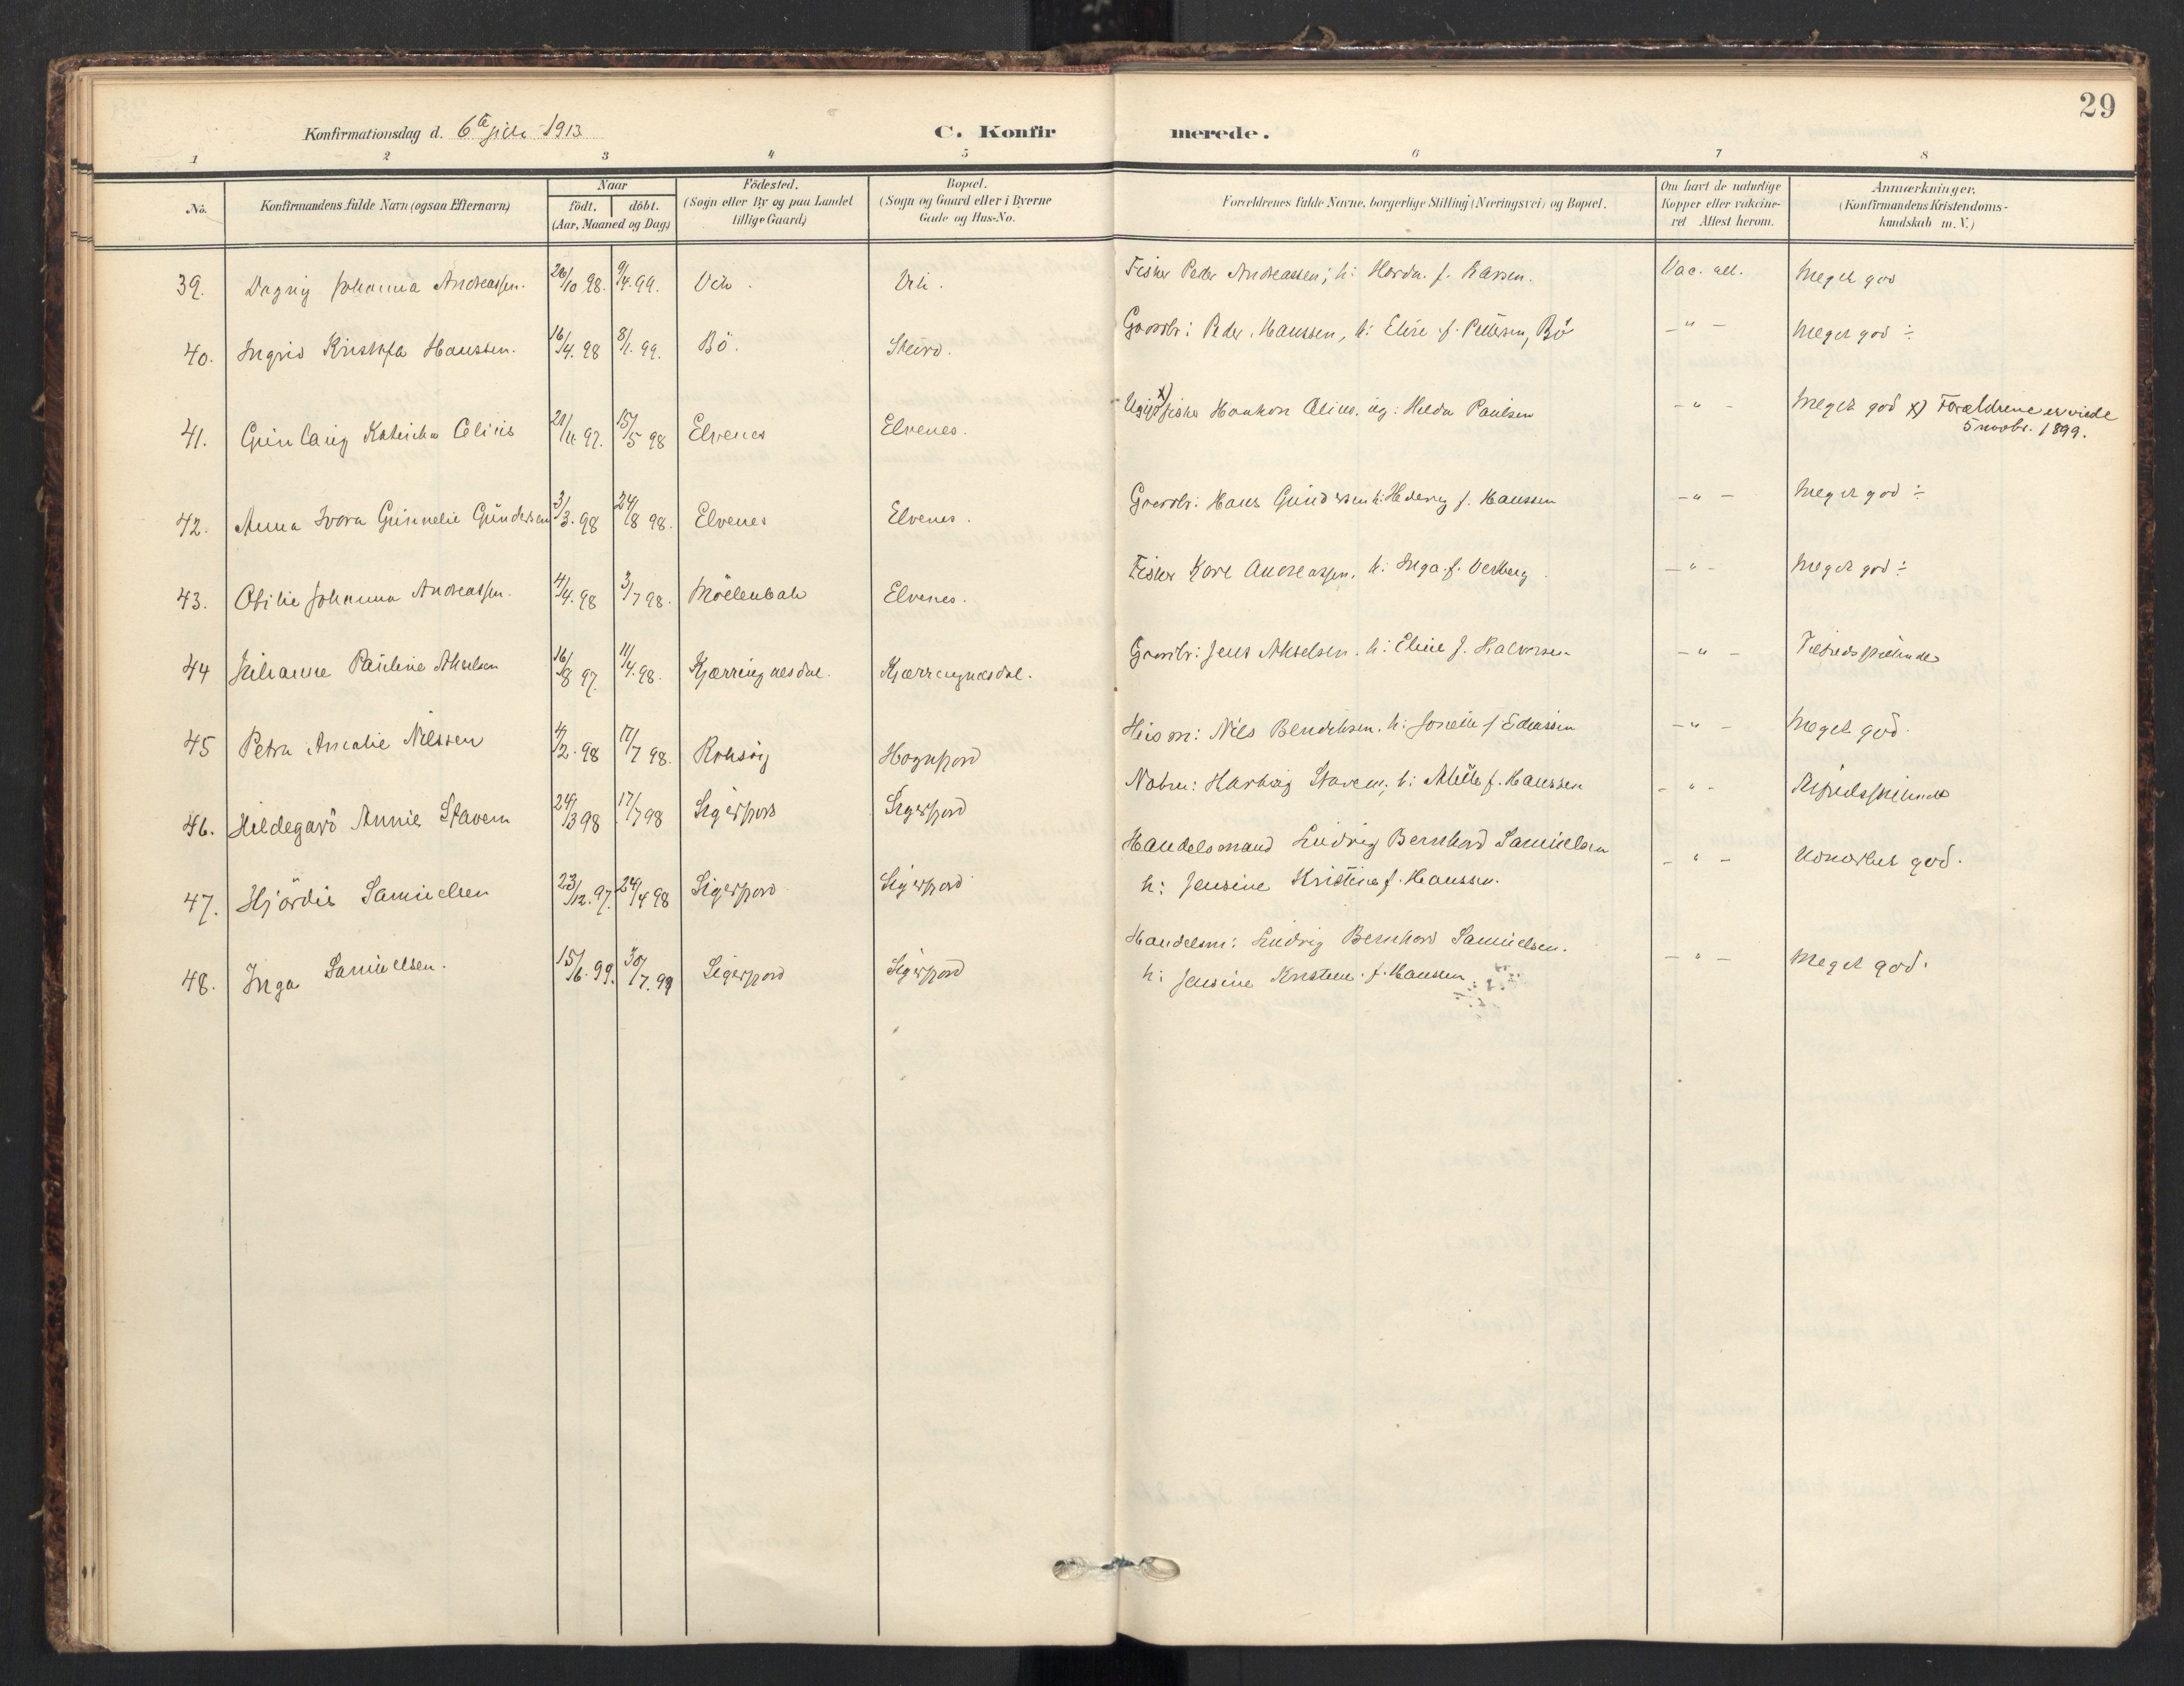 29
Konfirmationsdag d. 6te juli 1913
C. Konfir merede.
1 2 3 4 5 6 7 8
No.
Konfirmandens fulde Navn (ogsaa Efternavn)
Naar
født. døbt.
(Aar, Maaned og Dag)
Födested.
(Sogn eller By og paa Landet
tillige Gaard)
Bopæl.
(Sogn og Gaard eller i Byerne
Gade og Hus-No.
Forældrenes fulde Navne, borgerlige Stilling (Næringsvei) og Bopæl.
Om havt de naturlige
Kopper eller vakcine-
ret Attest herom.
Anmærkninger.
(Konfirmandens Kristendoms-
kundskab m. V.)
39. Dagny Johanna Andreassen. 26/10 98. 9/4. 99. Fisker Peder Andreassen; h: f. Vac. att. Meget god
40. Ingrid Kristofa Hanssen. 16/4. 98 8/1. 99. Bö. Steiro. Gaardbr: Peder Hanssen, h: Elise f. Pettersen, Bö — " — Meget god ÷
41. Gunlaug Katinka Elvenes Elvenes. x) fisker Haakon pig: Hilda Paulsen — " — Meget god x) Forældrene er viede
5 novbr. 1899.
42. Anna Gunnelie Gundersen 3/3. 98 24/8 98. Elvenes Elvenes. Gaardbr: Hans Gundersen h: Hedevig f. Hanssen — " — Meget god ÷
43. Otilie Johanna Andreassen. 4/4. 98 3/7 98. Elvenes. Fisker Andreassen, h: Inga f. — " — Meget god ÷
44 Julianne Pauline Akselsen 16/8 97. 11/4. 98. Kjærringnesdal. Kjærringnesdal. Gaardbr: Jens Akselsen. h: Eline f. Halvorsen — " — Tilfredsstillende
45 Petra Amalie Nilssen 4/2. 98 17/7 98. Roksöy Hognfjord Husm: Nils Bendiksen. h: f. — " — Meget god.
46. Hildegard Annie Stavem 24/3 98 17/7 98 Sigerfjord Sigerfjord Hartvig Stavem, h: f. Hanssen — " — Tilfredsstillende
47. Hjördis Samuelsen 23/12. 97. 24/4 98 Sigerfjord Sigerfjord Handelsmand Ludvig Bernhard Samuelsen
h: Jensine Kristine f. Hanssen. — " — Udmærket god.
48. Inga Samuelsen. 15/6. 99. 30/7. 99 Sigerfjord Sigerfjord Handelsm: Ludvig Bernhard Samuelsen.
h: Jensine Kristine f. Hanssen — " — Meget god.